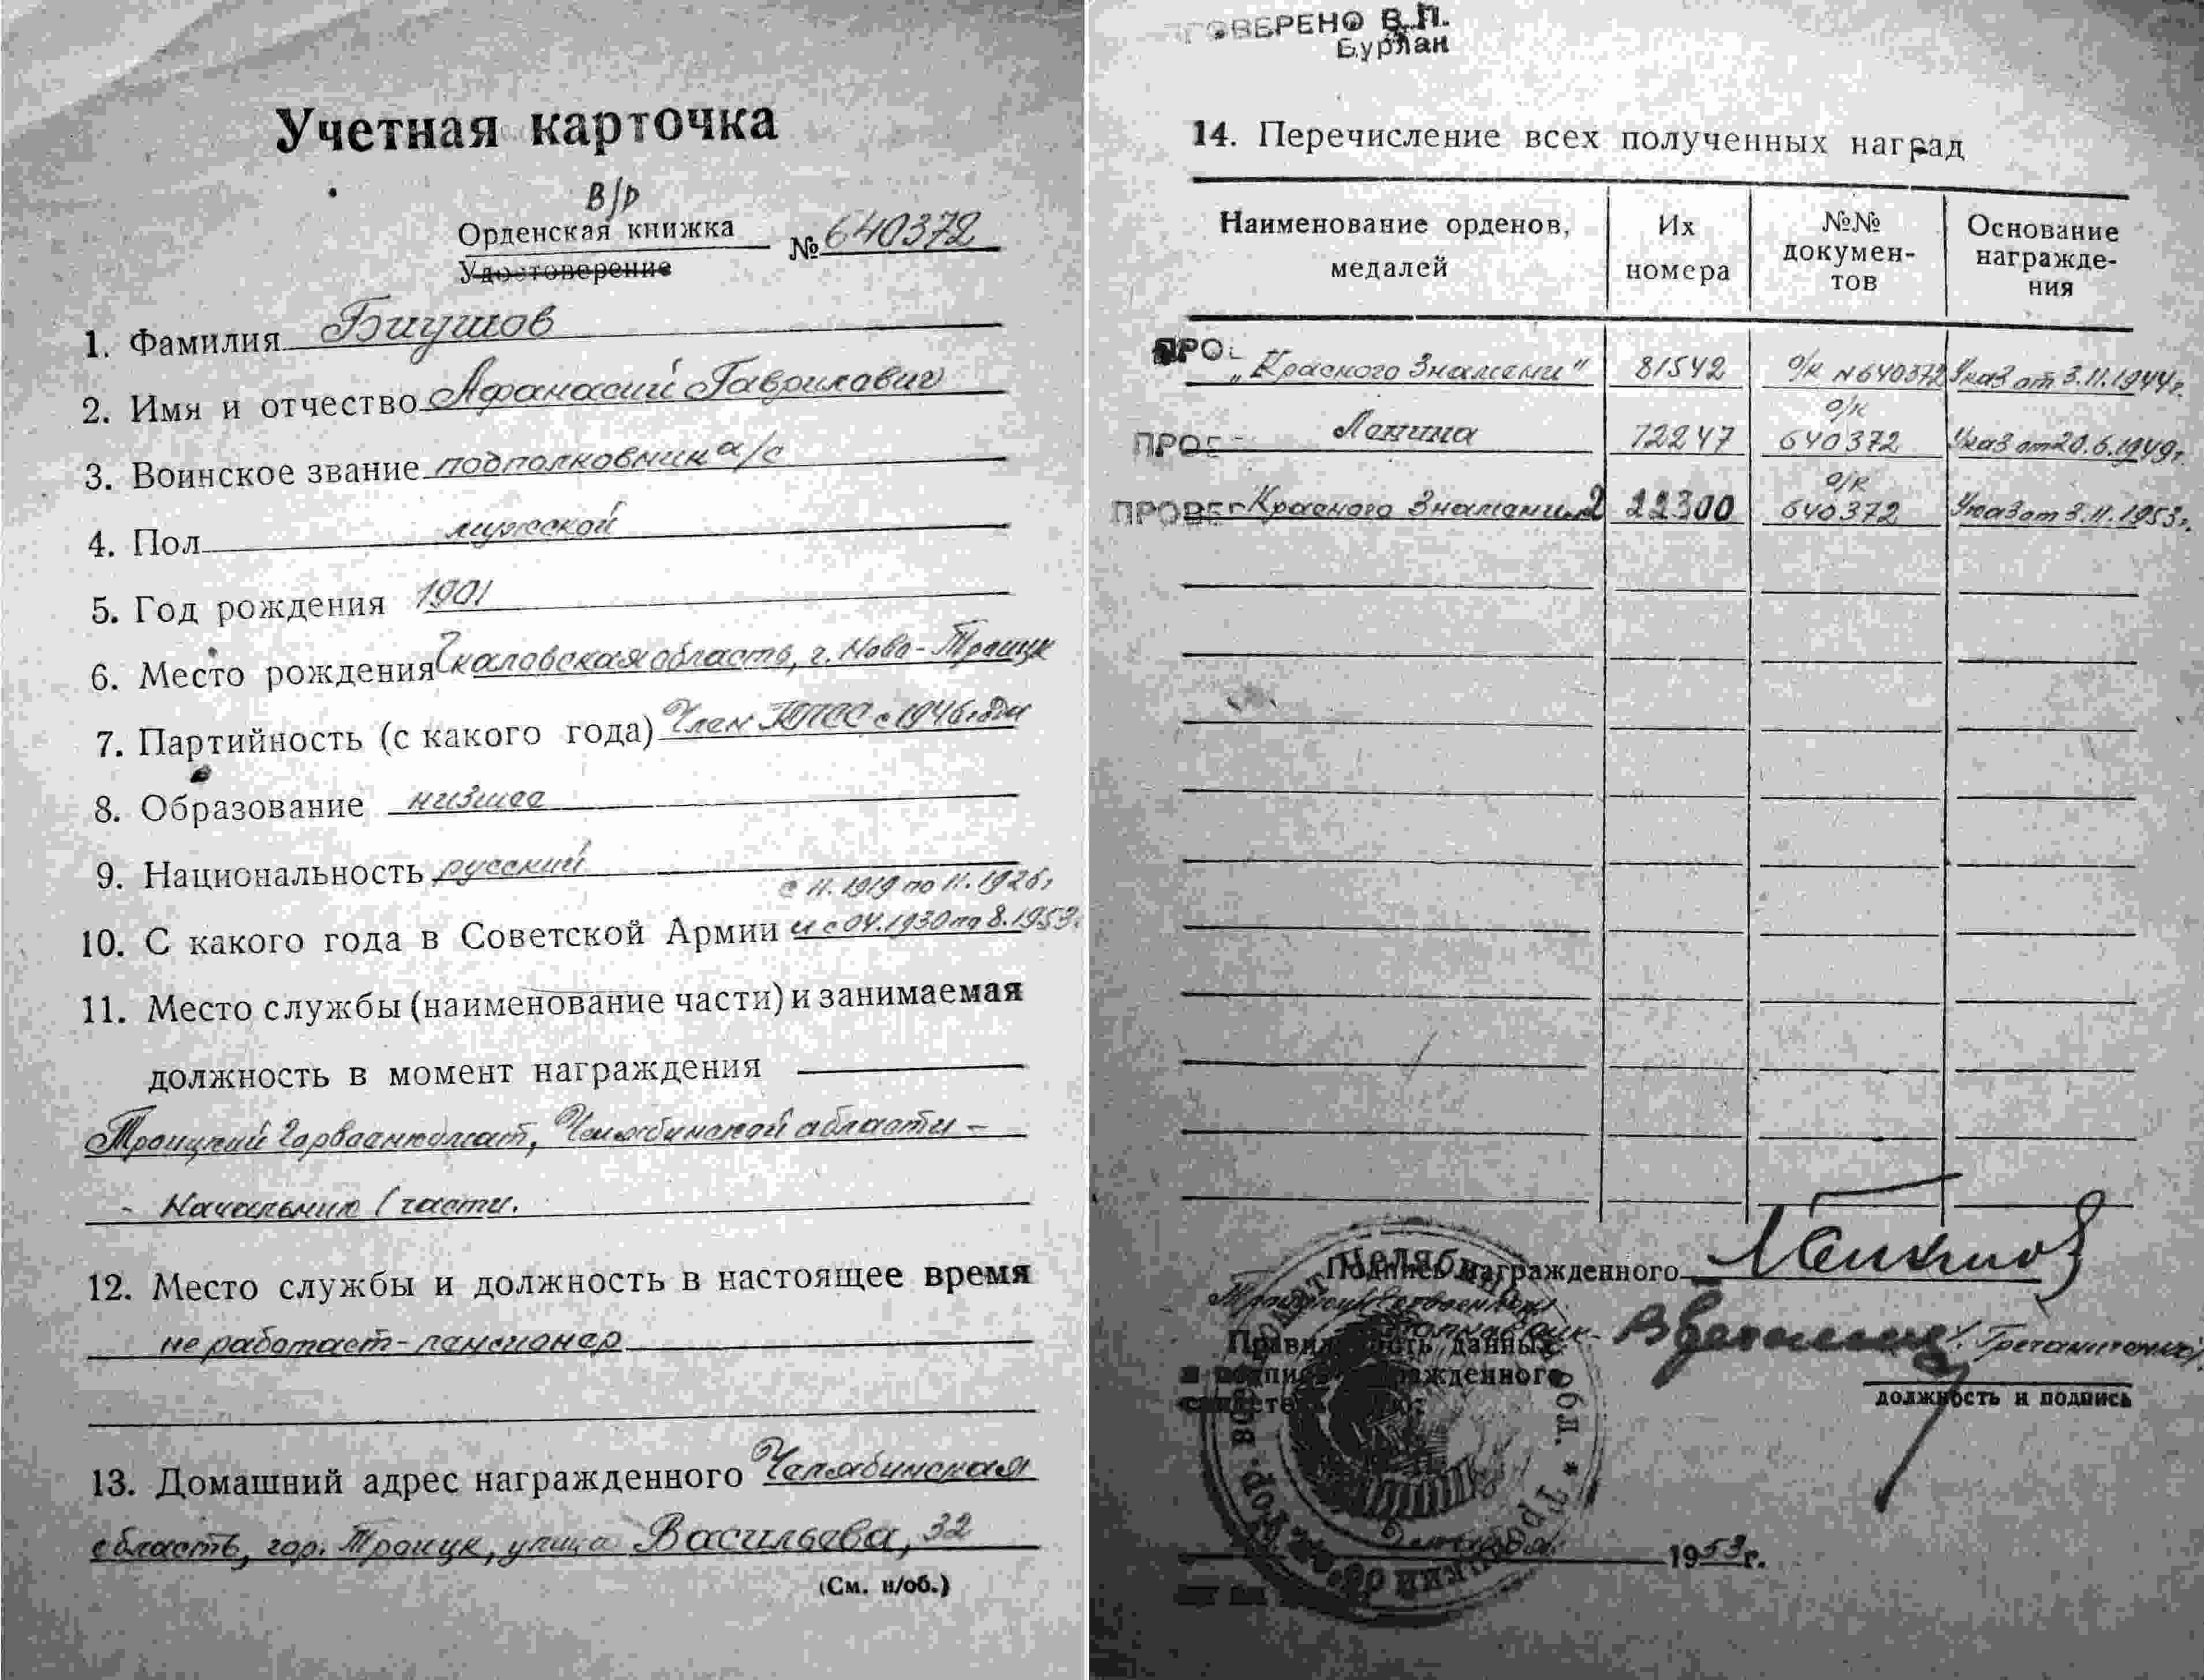 Учетная карточка
В/р
Орденская книжка № 640372
Удостоверение
1. Фамилия Биушов
2. Имя и отчество Афанасий Гаврилович
3. Воинское звание подполковник а/с
4. Пол мужской
5. Год рождения 1901
6. Место рождения Чкаловская область, г. Ново-Троицк
7. Партийность (с какого года) Член КПСС с 1946 года
8. Образование низшее
9. Национальность русский
с 11.1919 по 11.1926г
10. С какого года в Советской Армии и с 04.1930 по 8.1953г.
11. Место службы (наименование части) и занимаемая
должность в момент награждения
Троицкий Горвоенкомат, Челябинской области -
- Начальник 1 части.
12. Место службы и должность в настоящее время
не работает - пенсионер
13. Домашний адрес награжденного Челябинская
область, гор. Троицк, улица Васильева, 32
(См. н/об.)
ПРОВЕРЕНО В.П.
Бурлан
14. Перечисление всех полученных наград
Наименование орденов, медалей Их номера №№ документов Основание награждения
ПРО „Красного Знамени" 81542 о/к №640372 Указ от 3.11.1944г.
ПРОВ Ленина 72247 о/к 640372 Указ от 20.6.1949г.
ПРОВЕР Красного Знамени 2 22300 о/к 640372 Указ от 3.11.1953г.
Подпись награжденного
Правильность данных
и подпись награжденного
свидетельствую:
должность и подпись
1953 г.